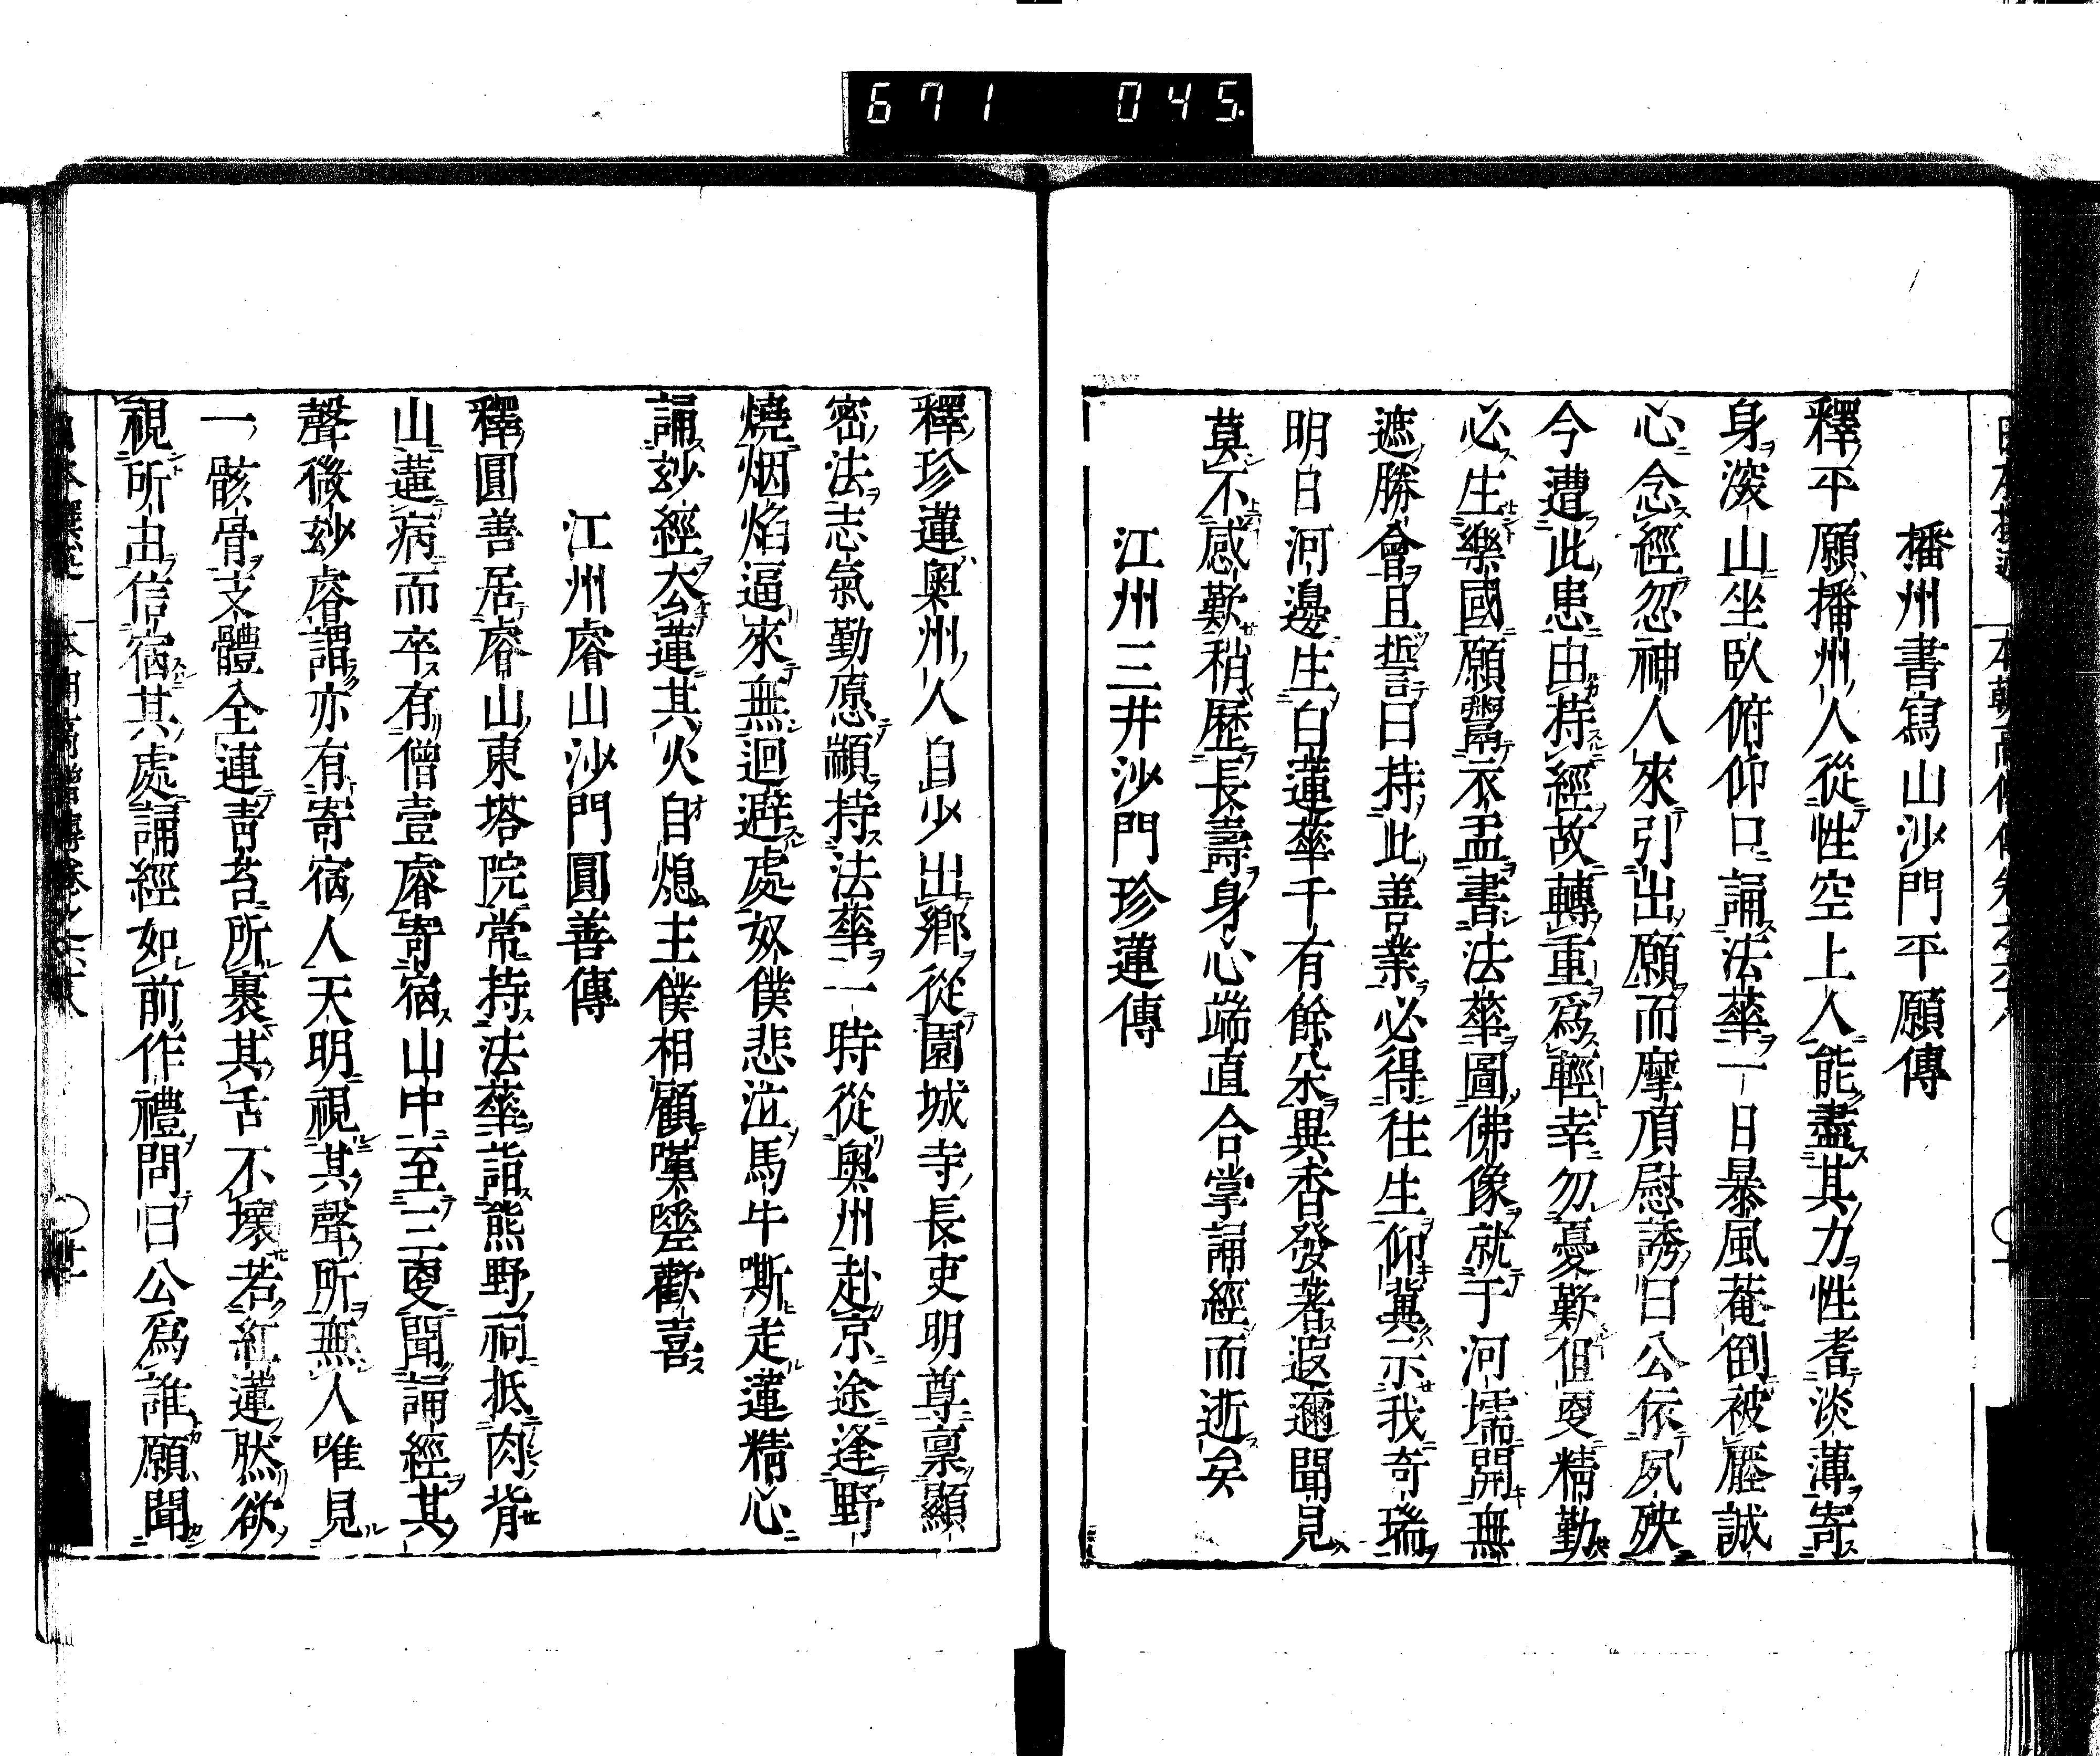 671 045
播州書寫山沙門平願傳
釋平願播州人從性空上人能盡其力性耆淡薄寄
身深山坐臥俯仰口誦法華一日暴風菴倒被壓誠
心念經忽神人來引出願而摩頂慰誘曰公依夙殃
今遭此患由持經故轉重爲輕幸勿憂歎但更精勤
必生樂國願鬻衣盂書法華圖佛像就于河壖開無
遮勝會且誓曰持此善業必得往生仰冀示我奇瑞
明日河邊生白蓮華千有餘朶異香發著遐邇聞見
莫不感歎稍歷長壽身心端直合掌誦經而逝矣
江州三井沙門珍蓮傳
釋珍蓮奧州人自少出鄉從園城寺長吏明尊稟顯
密法志氣勤愿顓持法華一時從奧州赴京途逢野
燒烟焰逼來無迴避處奴僕悲泣馬牛嘶走蓮精心
誦玅經太蓮其火自熄主僕相顧嘆嗟歡喜
江州睿山沙門圓善傳
釋圓善居睿山東塔院常持法華詣熊野祠抵肉背
山遘病而卒有僧壹睿寄宿山中至三更聞誦經其
聲微玅睿謂亦有寄宿人天明視其聲所無人唯見
一骸骨支體全連青苔所裹其舌不壞若紅蓮然欲
視所由信宿其處誦經如前作禮問曰公爲誰願聞